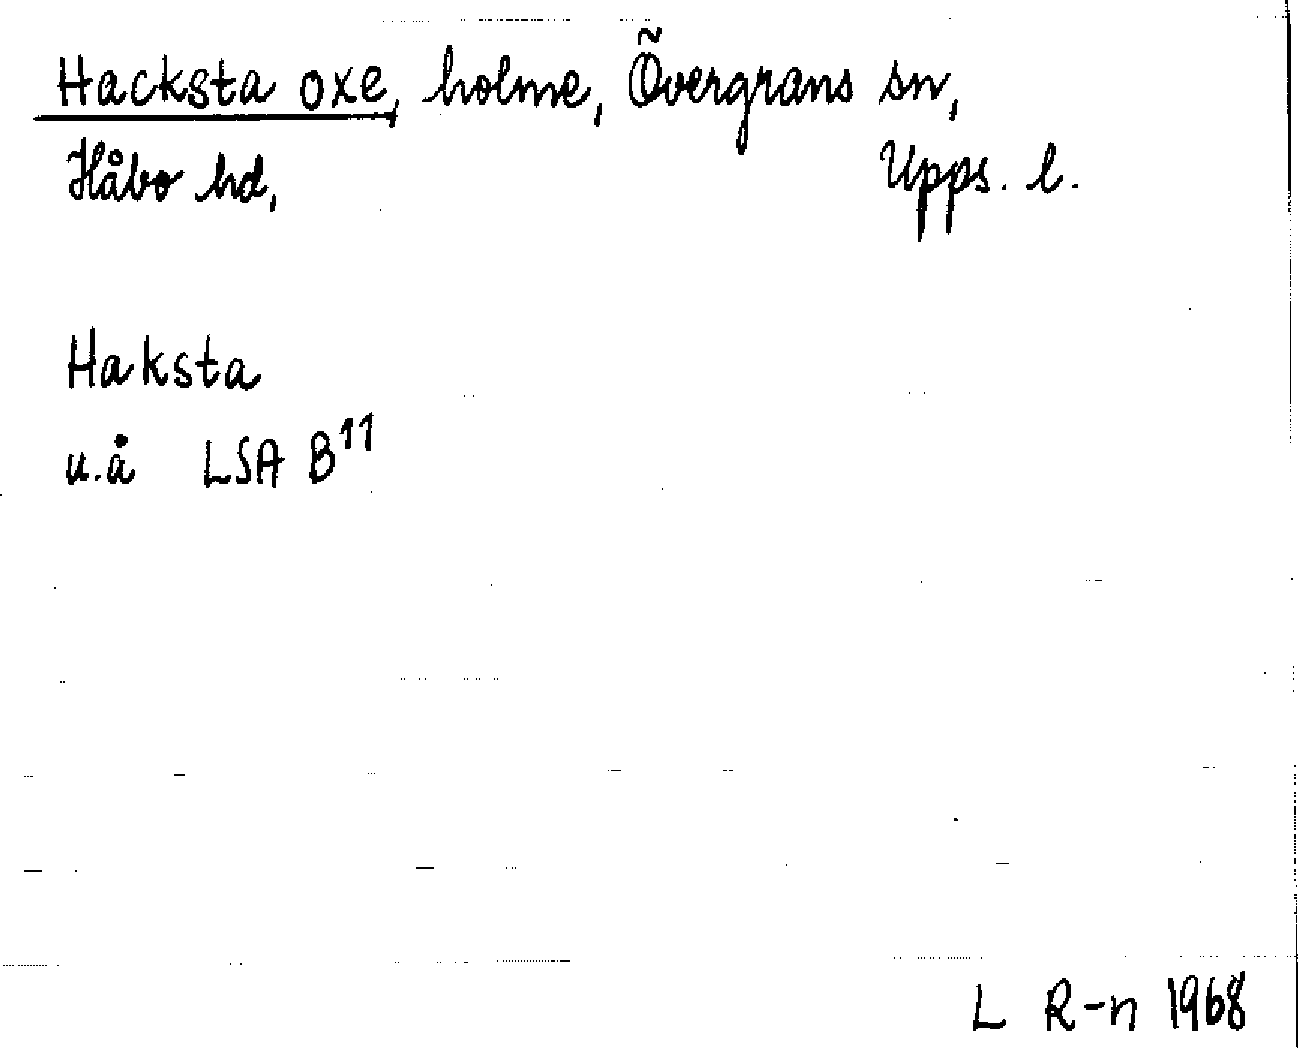 Hacksta oxe, holme, Övergrans sn,
Håbo hd, Upps. l.
Haksta
u.å LSA B¹¹
L R-n 1968